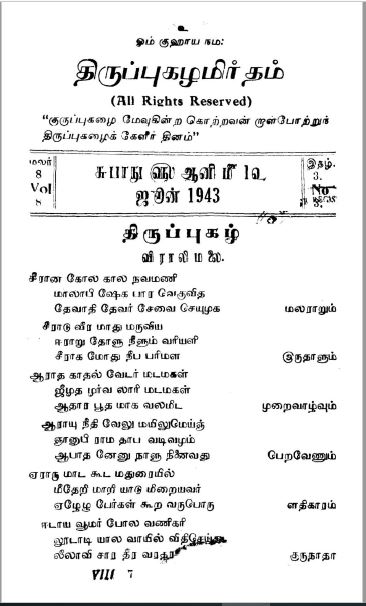 உ
ஓம் குஹாய நம:
திருப்புகழமிர்தம்
(All Rights Reserved)
"குருப்புகழை மேவுகின்ற கொற்றவன் முள்போற்றுந்
திருப்புகழைக் கேளீர் தினம்"
மலர் 8 Vol 8
சுபாநு ௵ ஆனி ௴ 1௳
ஜூன் 1943
இதழ். 3. No
திருப்புகழ்
விராலிமலை.
சீரான கோல கால நவமணி
மாலாபி ஷேக பார வெகுவித
தேவாதி தேவர் சேவை செயுமுக மலராறும்
சீராடு வீர மாது மருவிய
ஈராறு தோளு நீளும் வரியளி
சீராக மோது நீப பரிமள இருதாளும்
ஆராத காதல் வேடர் மடமகள்
ஜீமூத மூர்வ லாரி மடமகள்
ஆதார பூத மாக வலமிட முறைவாழ்வும்
ஆராயு நீதி வேலு மயிலுமெய்ஞ்
ஞானாபி ராம தாப வடிவமும்
ஆபாத னேனு நாளு நினைவது பெறவேணும்
ஏராரு மாட கூட மதுரையில்
மீதேறி மாறி யாடு மிறையவர்
ஏழேழு பேர்கள் கூற வருபொரு ளதிகாரம்
ஈடாய வூமர் போல வணிகரி
லூடாடி யால வாயில் விதிசெய்த
லீலாவி சார தீர வரதர குருநாதா
VIII 7